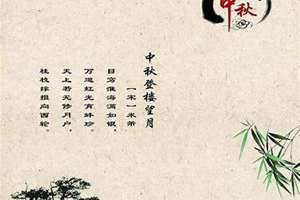 中秋
中秋登楼望月
【宋】米芾
目穷淮海满如银，
万道虹光育蚌珍。
天上若无修月户，
桂枝撑损向西轮。